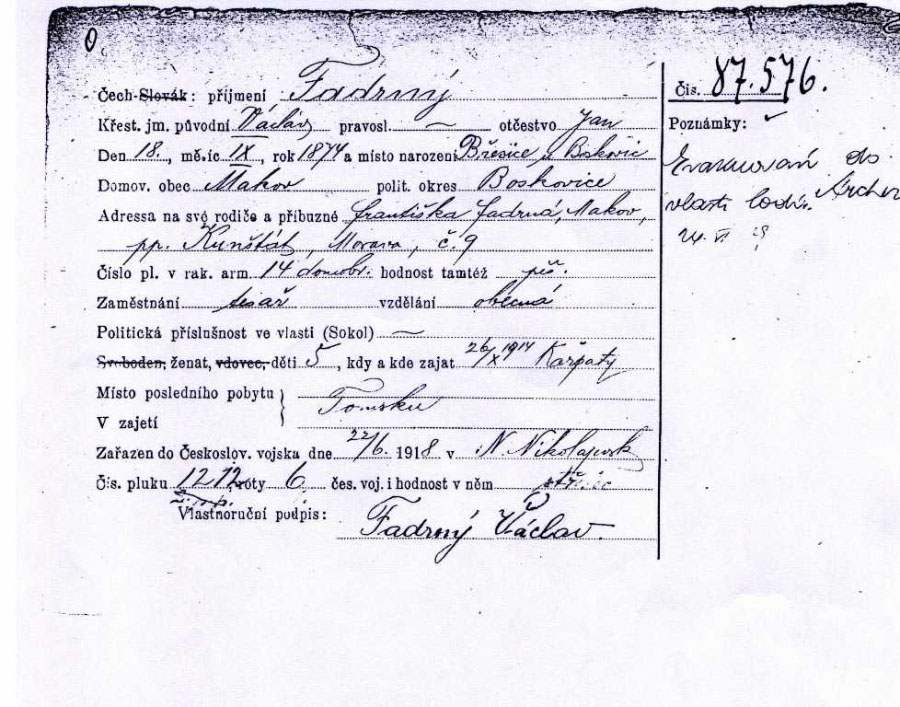 0.
Čech-Slovák: příjmení Fadrný
Křest. jm. původní Václav pravosl. — otčestvo Jan
Den 18., měsíc IX, rok 1874 a místo narození Březice u
Domov. obec Makov polit. okres Boskovice
Adressa na své rodiče a příbuzné Františka Fadrná, Makov,
pp. Kunštát, Morava, č. 9
Číslo pl. v rak. arm. 14 domobr. hodnost tamtéž pěš.
Zaměstnání tesař vzdělání obecná
Politická příslušnost ve vlasti (Sokol) —
Svoboden, ženat, vdovec, děti 5, kdy a kde zajat 26/X 1914 Karpaty
Místo posledního pobytu } Tomsku
V zajetí
Zařazen do Českoslov. vojska dne 22/6. 1918 v N. Nikolajevsk
Čís. pluku 12 12, roty 6 čes. voj. i hodnost v něm střelec
Vlastnoruční podpis: Fadrný Václav.
Čís. 87.576.
Poznámky:
Evakuován do
vlasti lodí Archer
24. VI